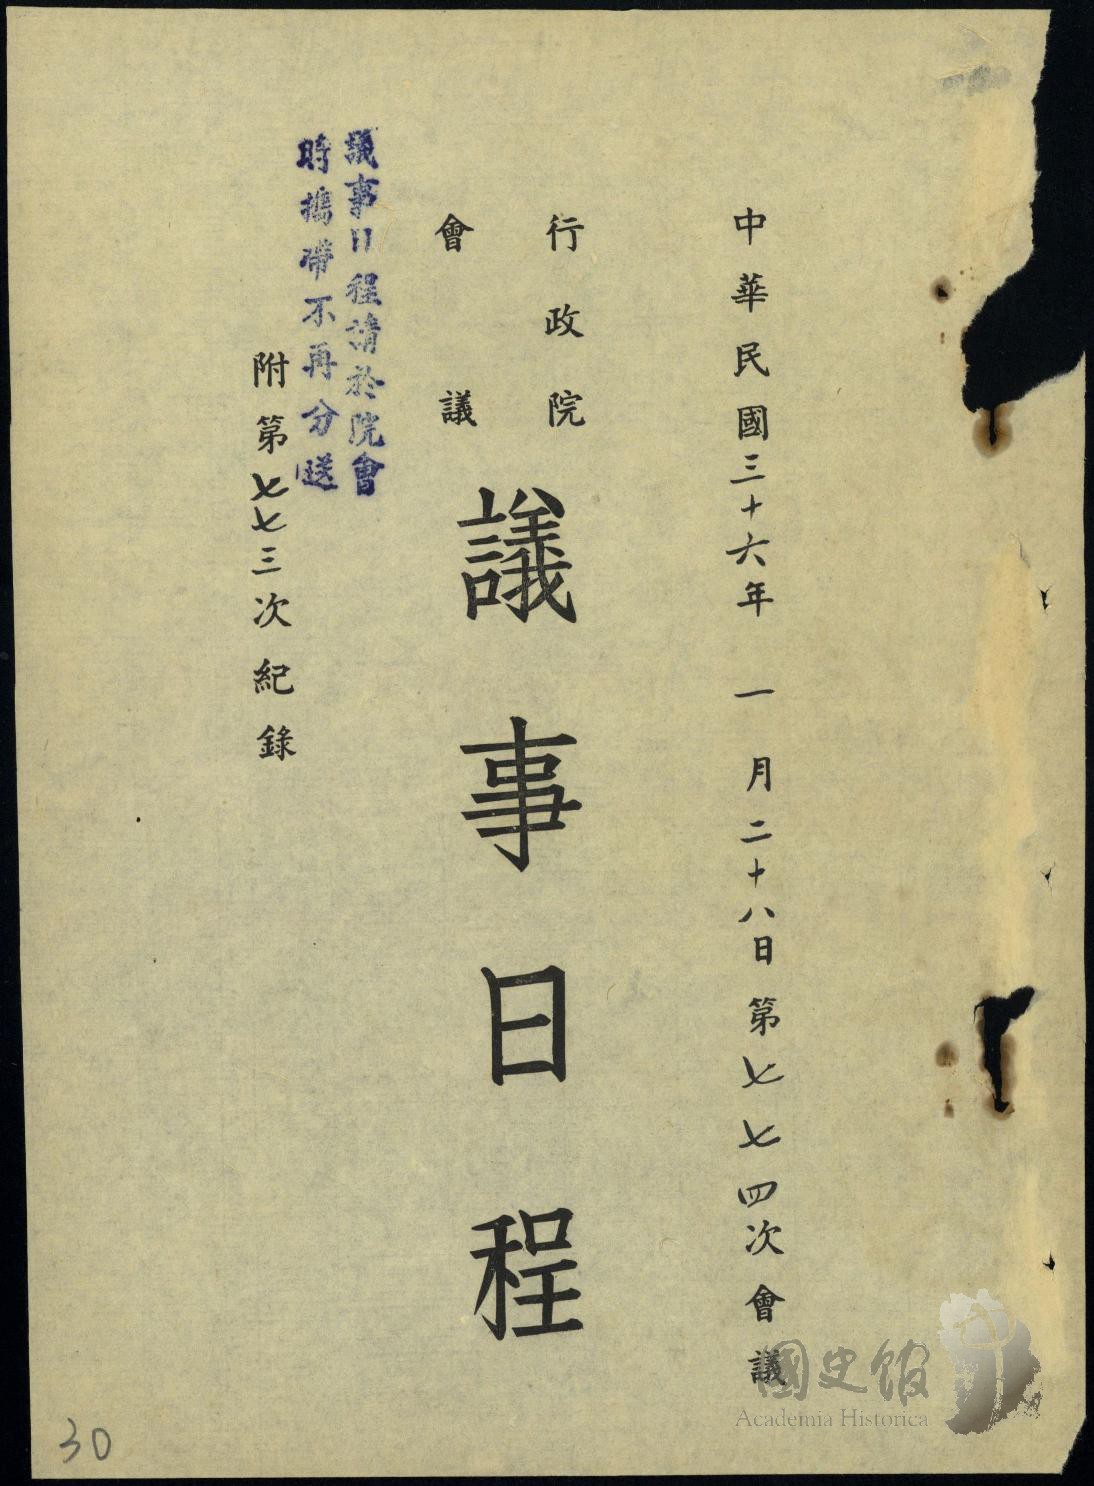 中華民國三十六年 一月二十八日第七七四次會議
行政院
會議
議事日程
議事日程請於院會
時攜帶不再分送
附第七七三次紀錄
30
國史館
Academia Historica